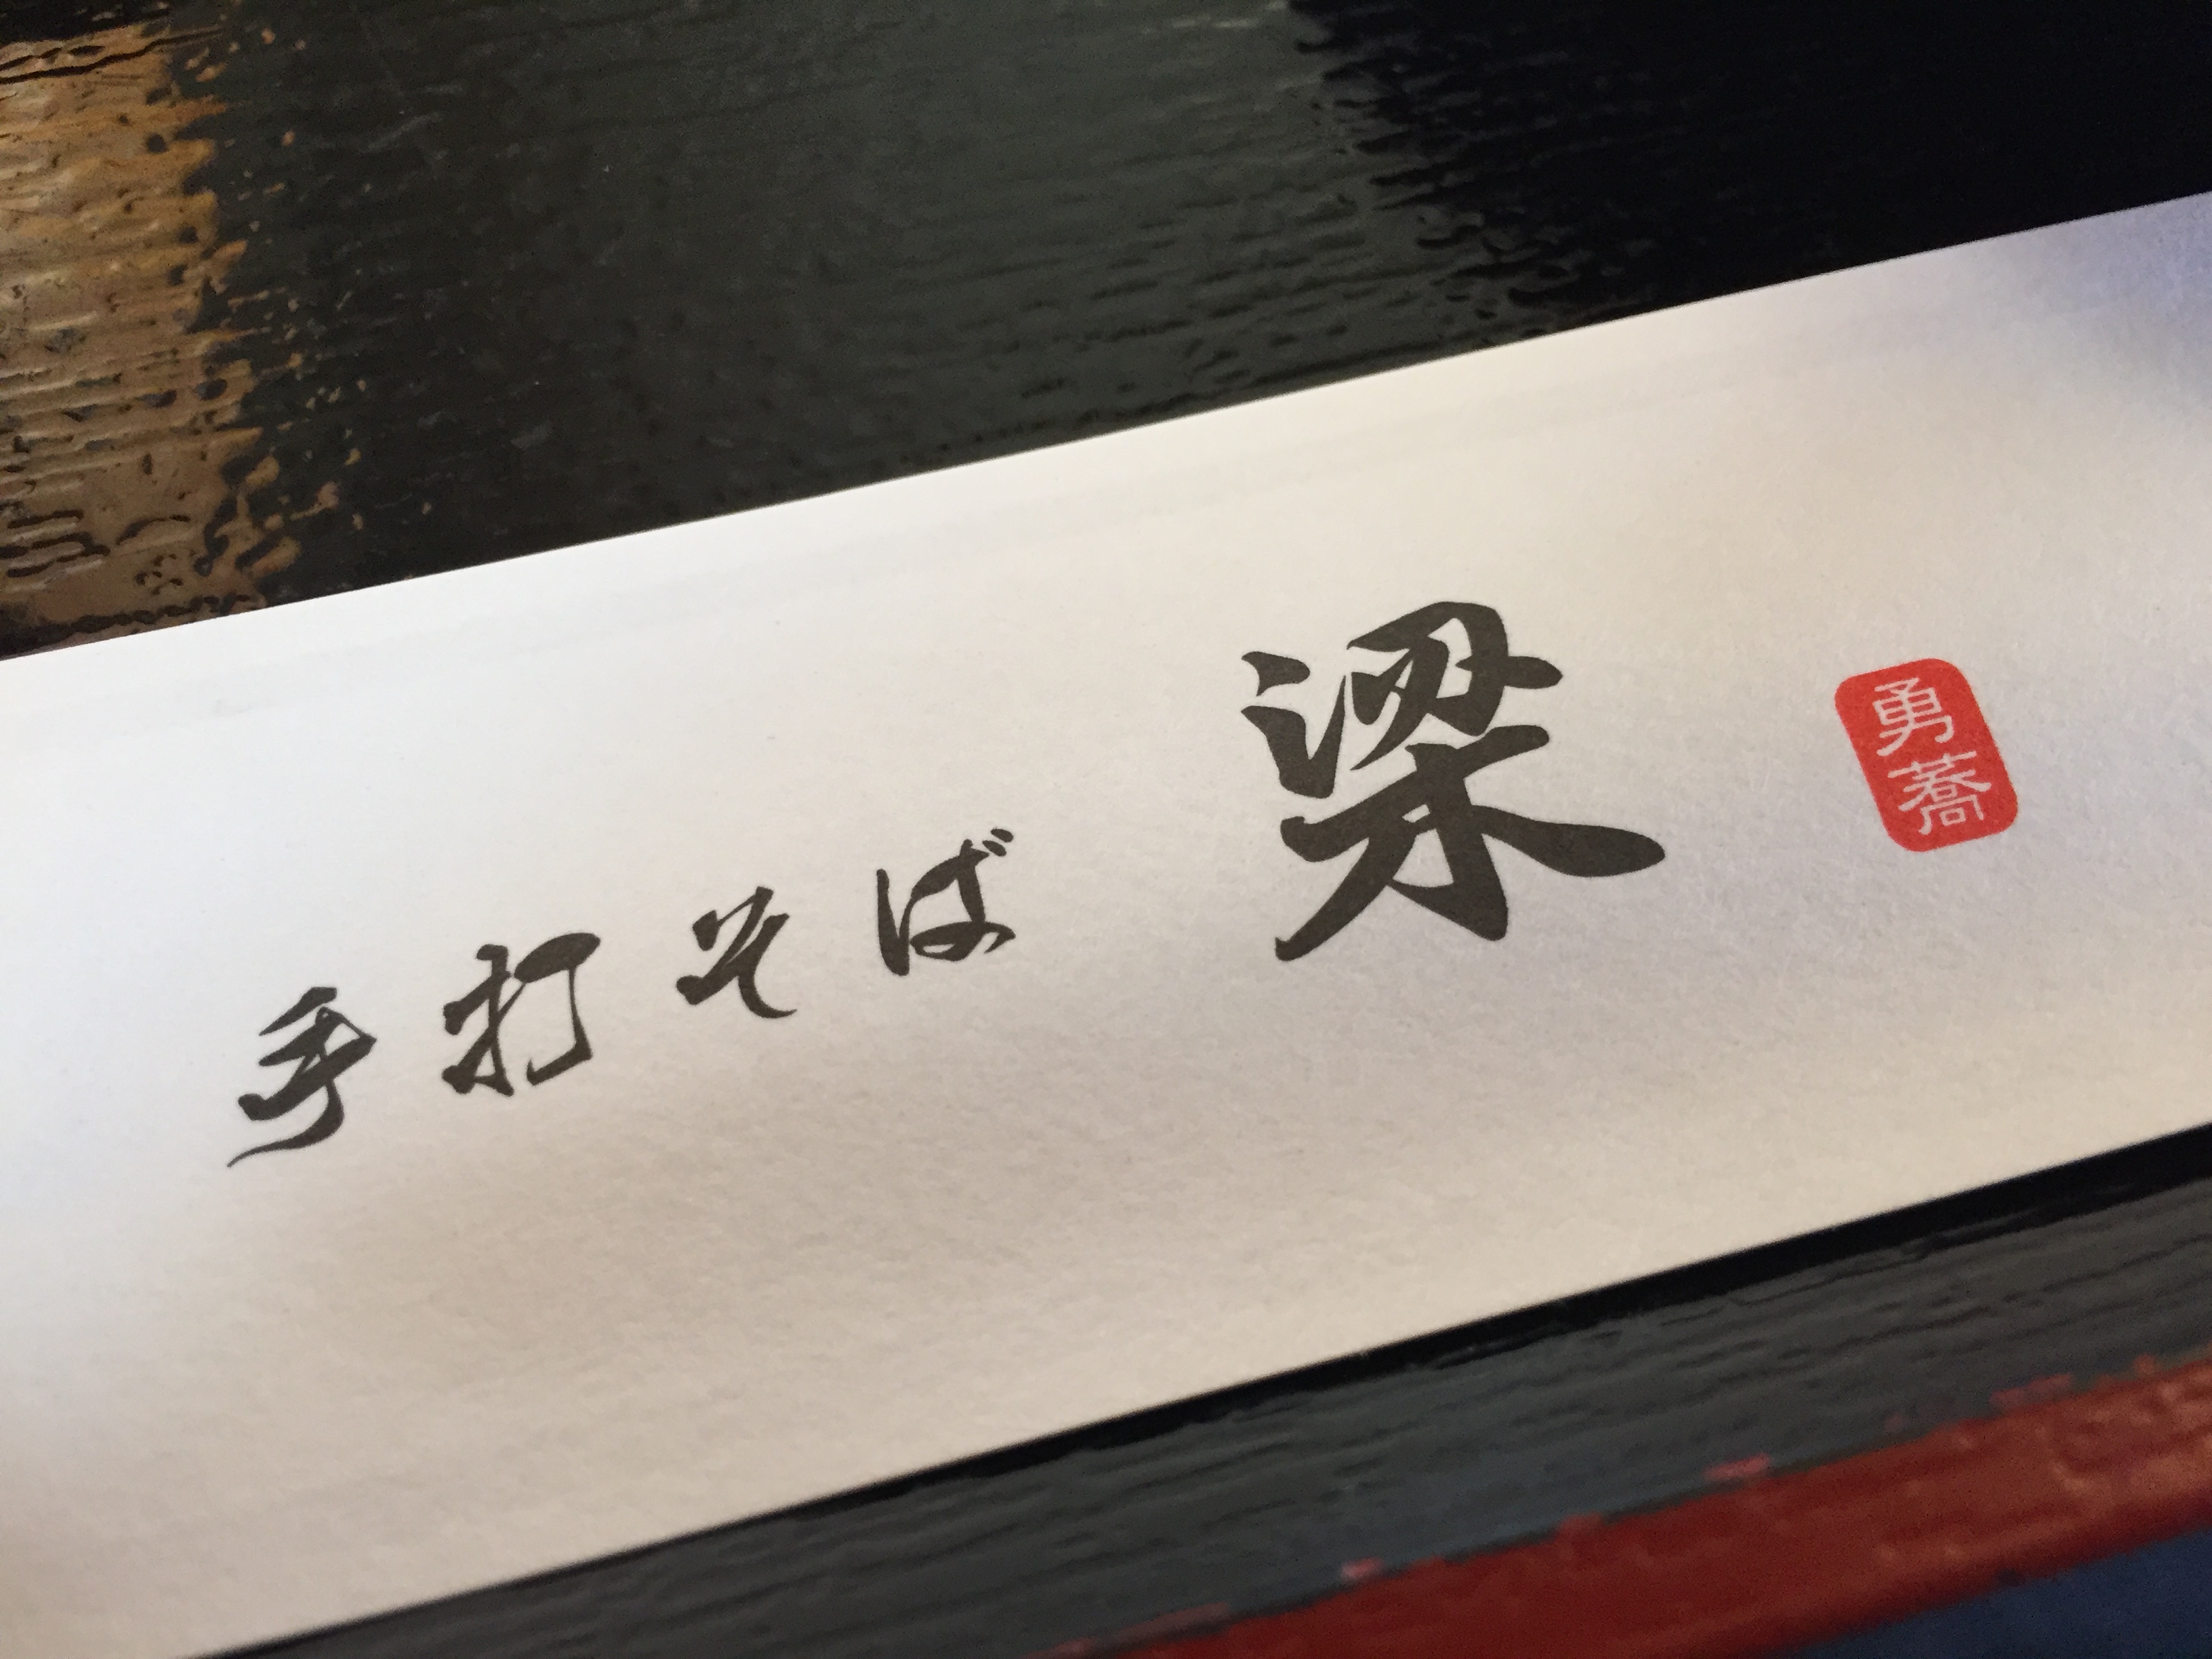 手打そば 梁
勇蕎